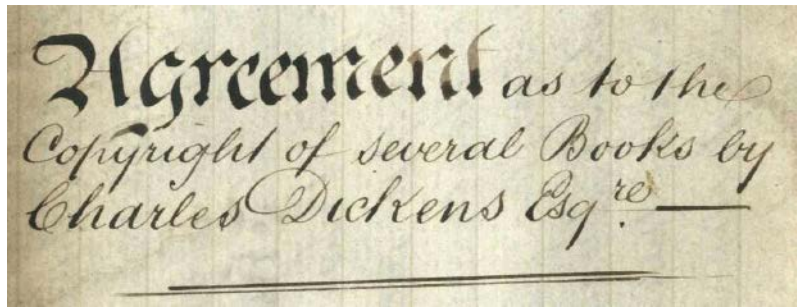 Agreement as to the
Copyright of several Books by
Charles Dickens Esqre.